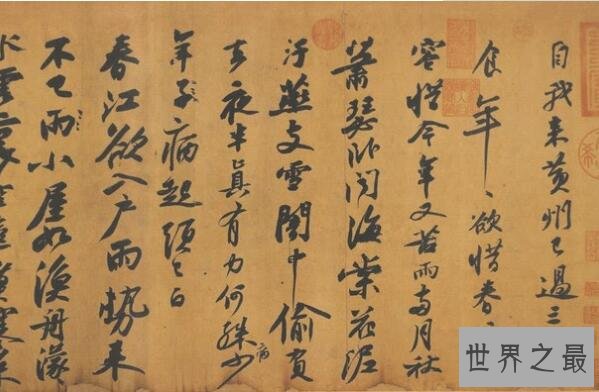 自我來黃州已過三
食年〻欲惜春〻
容惜今年又苦雨兩月秋
蕭瑟臥聞海棠花泥
汙燕支雪闇中偷負
去夜半真有力何殊少病
年子病起頭已白
春江欲入戶雨勢來
不已雨小屋如漁舟濛
水雲裏
世界之最